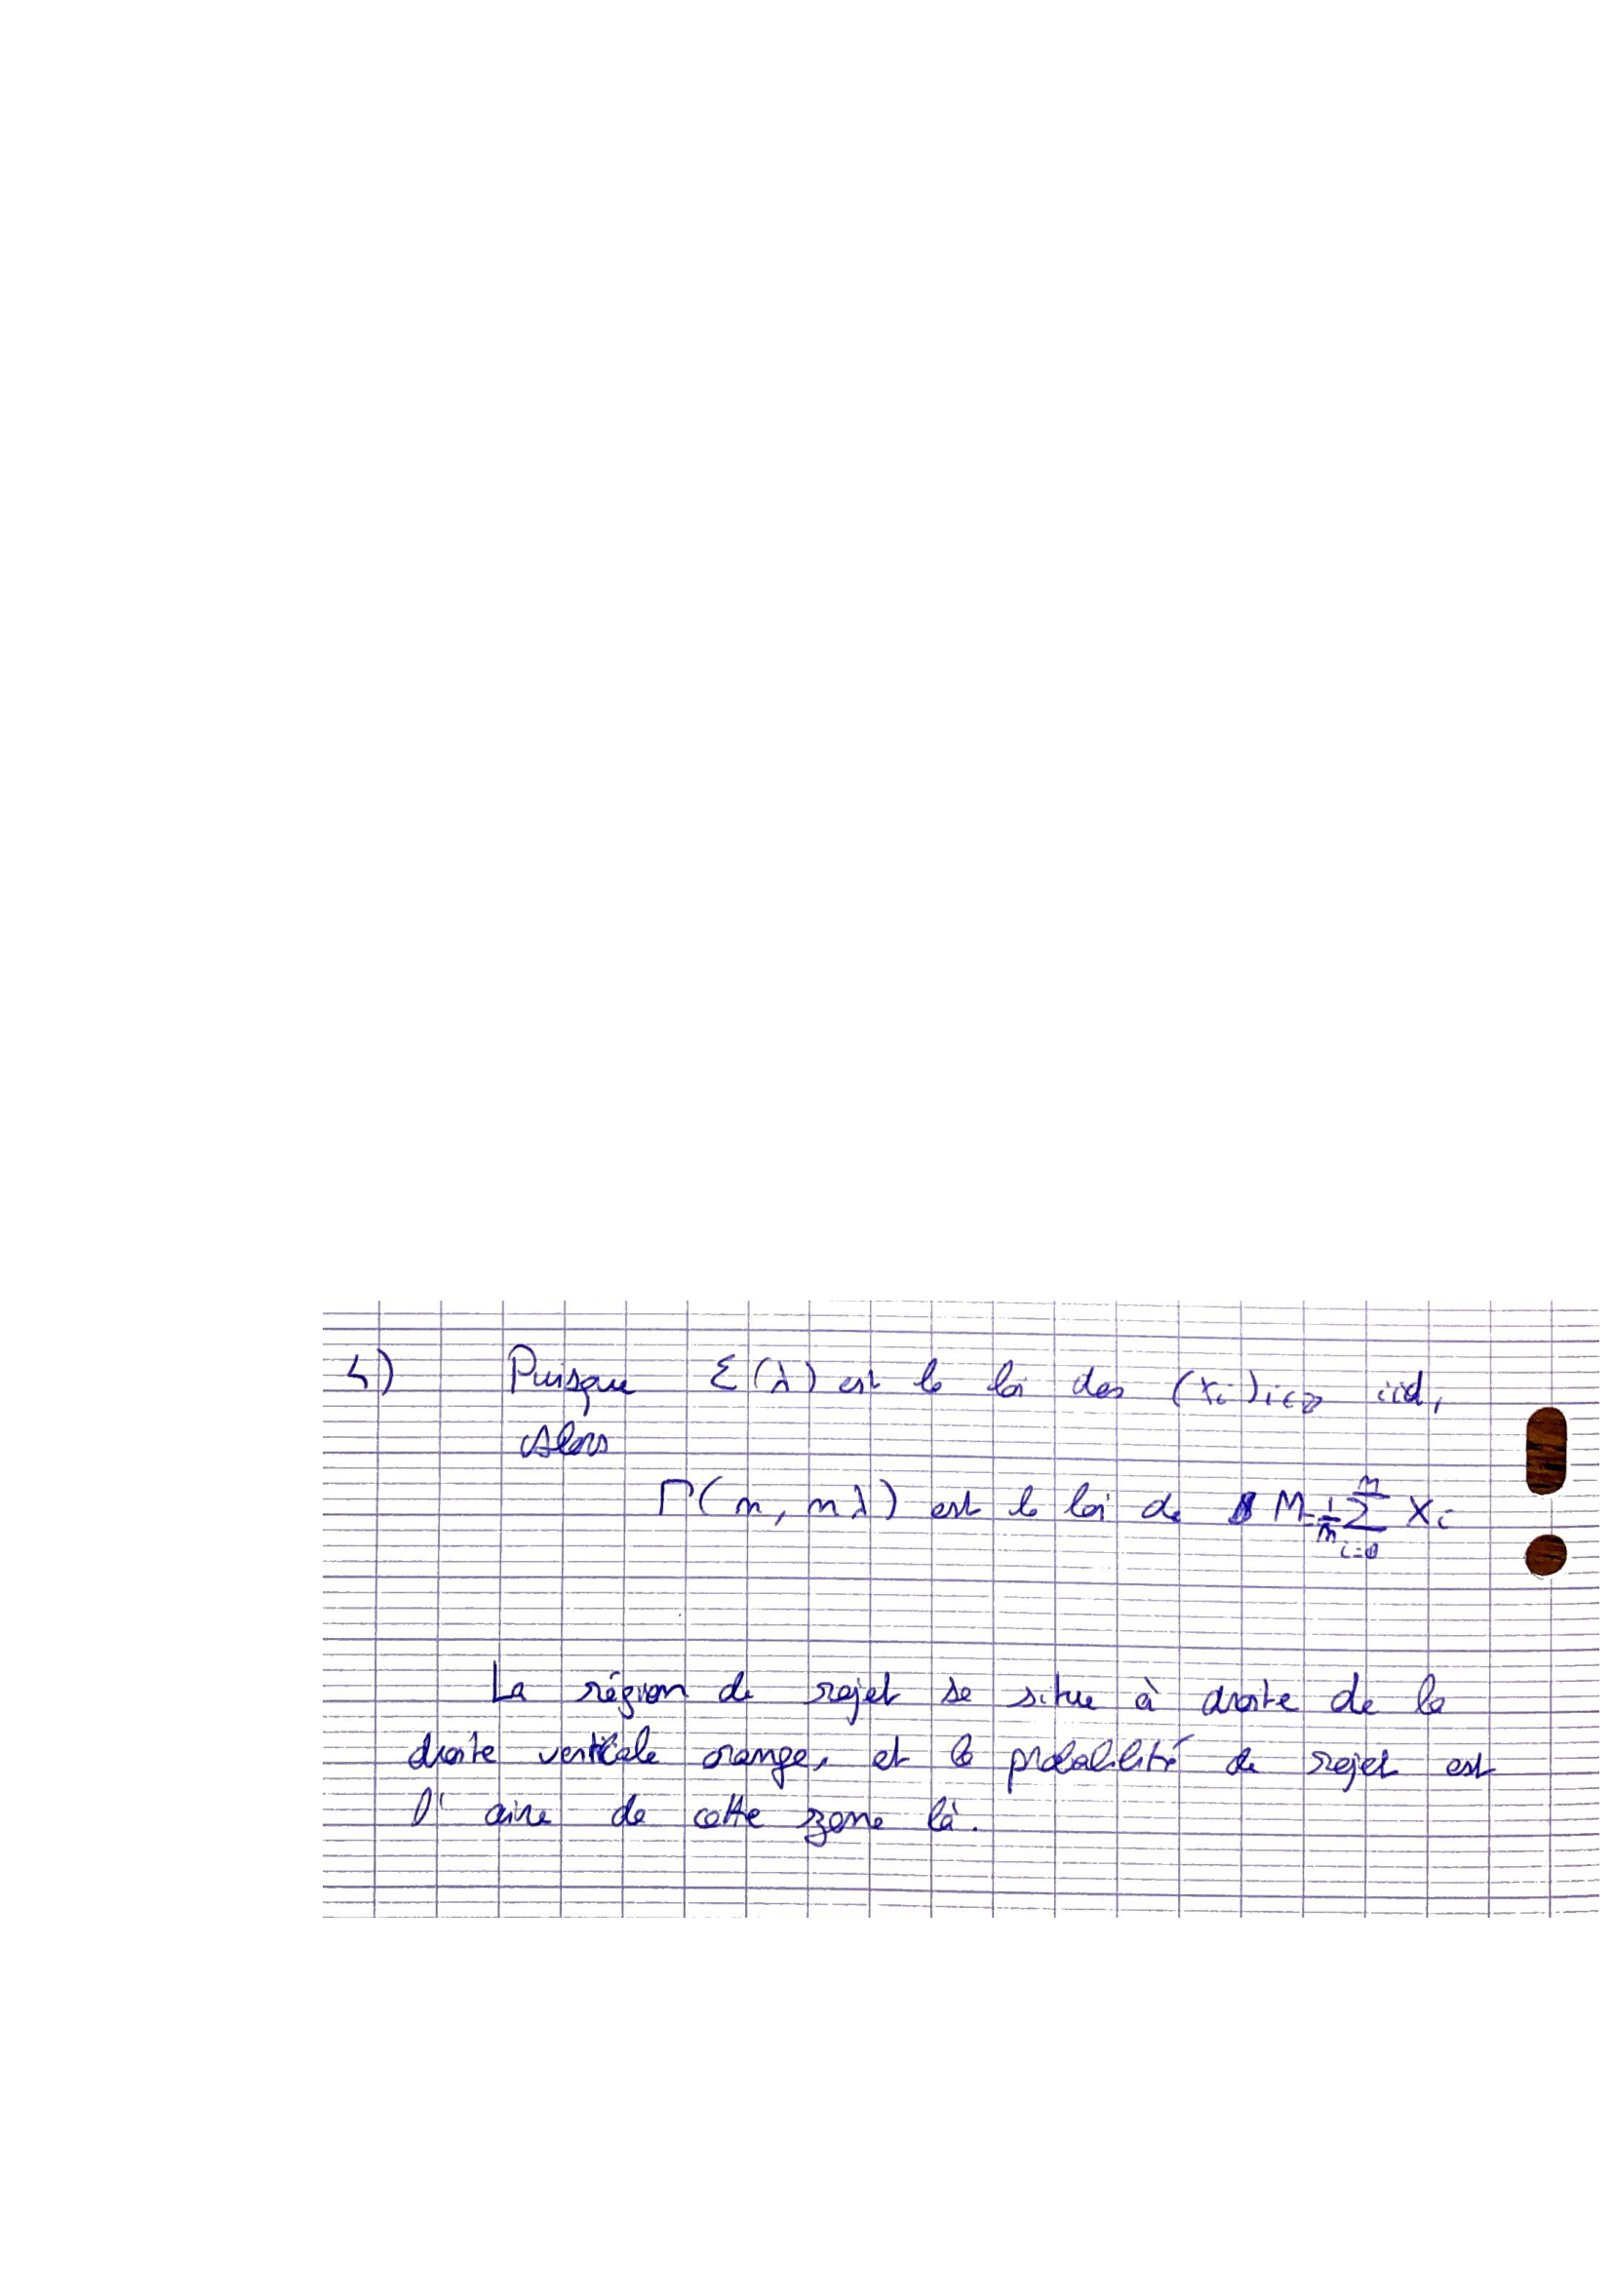 4) Puisque ℰ(λ) est la loi des (Xi)i∈ iid,
Alors
Γ(n, nλ) est la loi de M = 1/n ∑_{i=0}^{n} Xi
La région de rejet se situe à droite de la
droite verticale orange, et la probabilité de rejet est
l'aire de cette zone là.